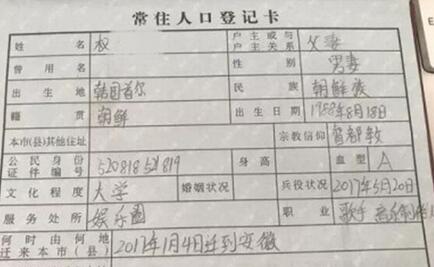 常住人口登记卡
姓名 权 户主或与户主关系 父妻
曾用名 性别 男妻
出生地 韩国首尔 民族 朝鲜族
籍贯 朝鲜 出生日期 1988年8月18日
本市(县)其他住址 宗教信仰
公民身份证件编号 520818521819 身高 血型 A
文化程度 大学 婚姻状况 兵役状况 2017年5月20日
服务处所 娱乐圈 职业 歌手 音乐制作人
何时由何地迁来本市(县) 2017年1月4日迁到安徽